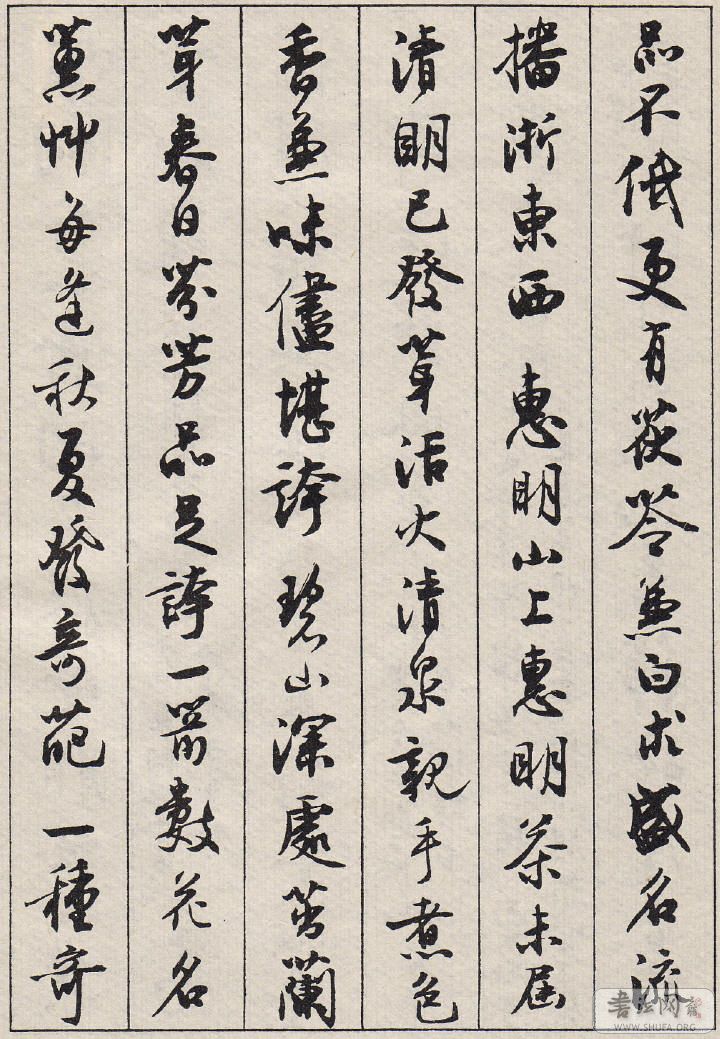 品不低更有茯苓兼白朮盛名流
播浙東西 惠明山上惠明茶未屆
清明已發芽活火清泉親手煮色
香兼味儘堪誇 碧山深處蘭
芽春日芬芳品足誇一箭數花名
蕙艸每逢秋夏發奇葩 一種奇
書法网
WWW.SHUFA.ORG